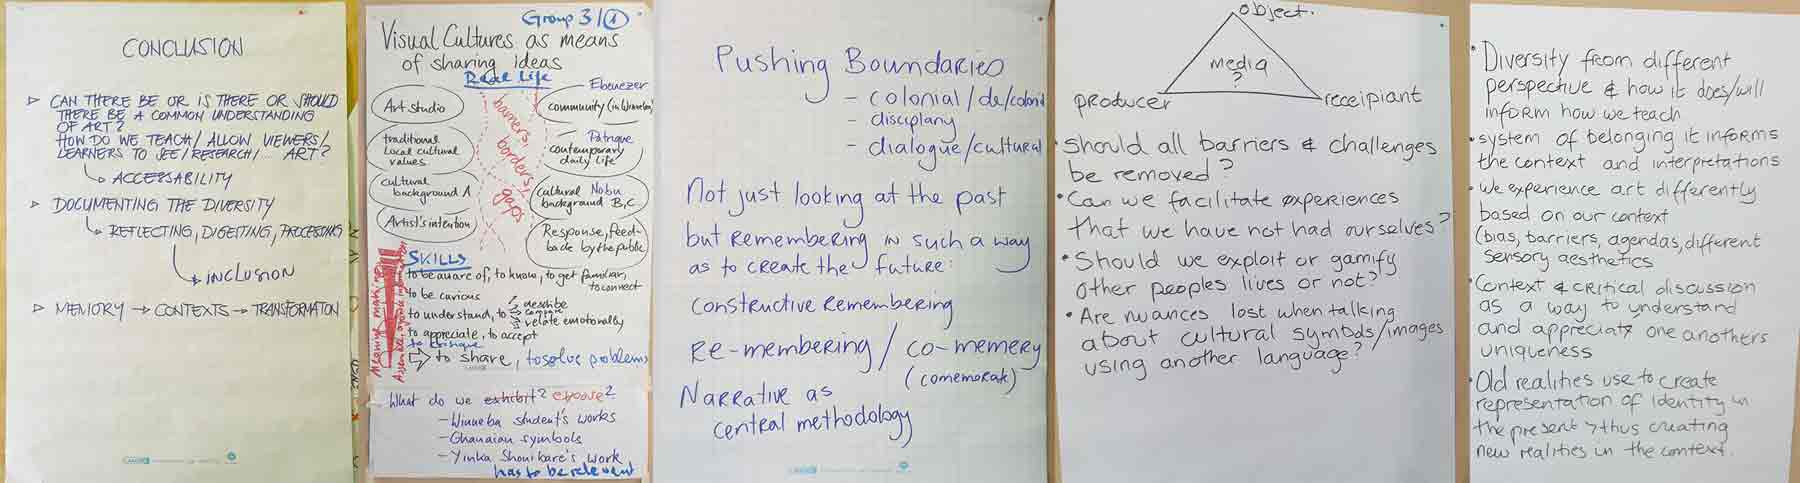 CONCLUSION
▷ CAN THERE BE OR IS THERE OR SHOULD
THERE BE A COMMON UNDERSTANDING
OF ART?
HOW DO WE TEACH/ ALLOW VIEWERS/
LEARNERS TO SEE/RESEARCH/... ART?
↳ ACCESSABILITY
▷ DOCUMENTING THE DIVERSITY
↳ REFLECTING, DIGESTING, PROCESSING
↳ INCLUSION
▷ MEMORY → CONTEXTS → TRANSFORMATION
Group 3/①
Visual Cultures as means
of sharing ideas
Real Life
Art studio
traditional
local cultural
values
cultural
background A
Artist's intention
barriers,
borders,
gaps
Ebenezer
community (in Winneba)
Patrique
contemporary
daily life
cultural Nobu
background B, C
Response, feed-
back by the public
SKILLS
Meaning making
to be aware of, to know, to get familiar,
to connect
to be curious
to understand, to
describe
compare
relate emotionally
to appreciate, to accept
to critique
⇨ to share, to solve problems
What do we exhibit? expose?
- Winneba student's works
- Ghanaian symbols
- Yinka Shonibare's work
has to be relevant
Pushing Boundaries
- colonial/de/colonial
- disciplany
- dialogue/cultural
Not just looking at the past
but Remembering in such a way
as to create the future:
constructive remembering
Re-membering / co-memery
(comemorate)
Narrative as
central methodology
object.
media
?
producer
receipiant
• Should all barriers & challenges
be removed?
• Can we facilitate experiences
that we have not had ourselves?
• Should we exploit or gamify
other peoples lives or not?
• Are nuances lost when talking
about cultural symbols/images
using another language?
• Diversity from different
perspective & how it does/will
inform how we teach
• system of belonging it informs
the context and interpretations
• We experience art differently
based on our context
(bias, barriers, agendas, different
sensory aesthetics
• Context & critical discussion
as a way to understand
and appreciate one anothers
uniqueness
• Old realities use to create
representation of identity in
the present → thus creating
new realities in the context.